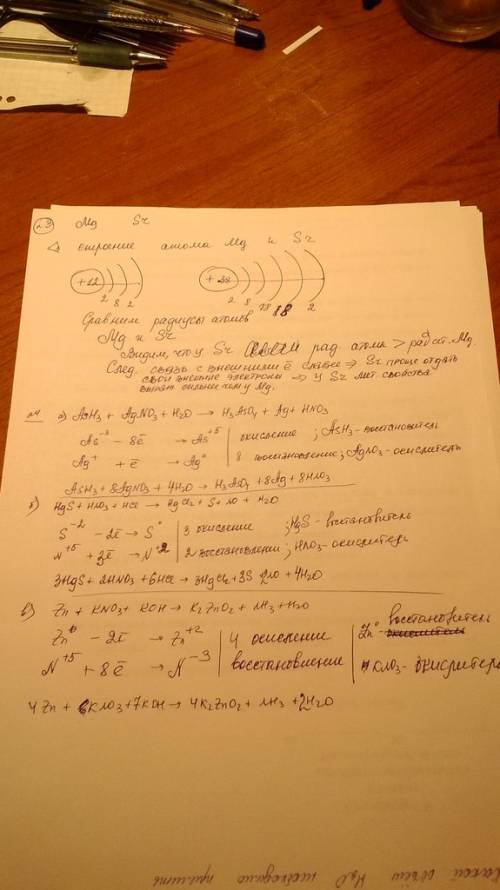 №3 Mg Sr
строение атома Mg и Sr
+12 +38
2 8 2 2 8 18 8 2
Сравним радиусы атомов
Mg и Sr
Видим, что у Sr рад атома > рад ат. Mg.
След. связь с внешними ē слабее => Sr проще отдать
свои внешние электроны => у Sr мет. свойства
выраж сильнее чем у Mg.
№4 а) AsH3 + AgNO3 + H2O → H3AsO4 + Ag + HNO3
As-3 - 8ē → As+5 | окисление ; AsH3 - восстановитель
Ag+ + ē → Ag0 | 8 восстановление ; AgNO3 - окислитель
AsH3 + 8AgNO3 + 4H2O → H3AsO4 + 8Ag + 8HNO3
б) HgS + HNO3 + HCl → HgCl2 + S + NO + H2O
S-2 - 2ē → S0 | 3 окисление ; HgS - восстановитель
N+5 + 3ē → N+2 | 2 восстановлении ; HNO3 - окислитель
3HgS + 2HNO3 + 6HCl → 3HgCl2 + 3S 2NO + 4H2O
в) Zn + KNO3 + KOH → K2ZnO2 + NH3 + H2O
Zn0 - 2ē → Zn+2 | 4 окисление | Zn0 восстановитель
N+5 + 8ē → N-3 | восстановление | KNO3 - окислитель
4Zn + KNO3 + 7KOH → 4K2ZnO2 + NH3 + 2H2O
какой объем H2O необходимо прилить